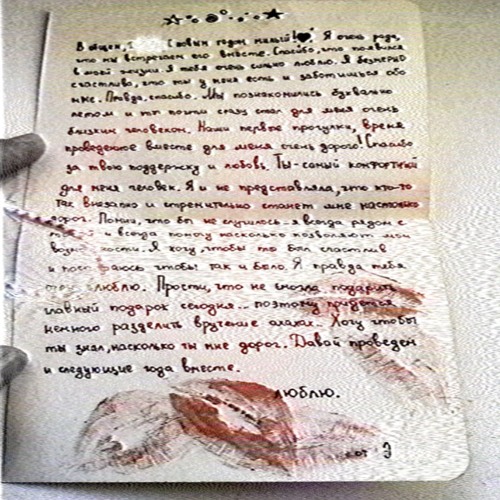 В общем, С новым годом милый! Я очень рада,
что мы встречаем его вместе. Спасибо, что появился
в моей жизни. Я тебя очень сильно люблю. Я безмерно
счастлива, что ты у меня есть и заботишься обо
мне. Правда, спасибо. Мы познакомились буквально
летом и ты почти сразу стал для меня очень
близким человеком. Наши первые прогулки, время
проведенное вместе для меня очень дорого! Спасибо
за твою поддержку и любовь. Ты - самый комфортный
для меня человек. Я и не представляла, что кто-то
так внезапно и стремительно станет мне настолько
дорог. Помни, что бы не случилось - я всегда рядом с
и всегда помогу насколько позволяют мои
Я хочу, чтобы ты был счастлив
и чтобы так и было. Я правда тебя
люблю. Прости, что не смогла подарить
главный подарок сегодня... поэтому придется
немного разделить вручение Хочу чтобы
ты знал, насколько ты мне дорог. Давай проведем
и следующие года вместе.
люблю.
от Э